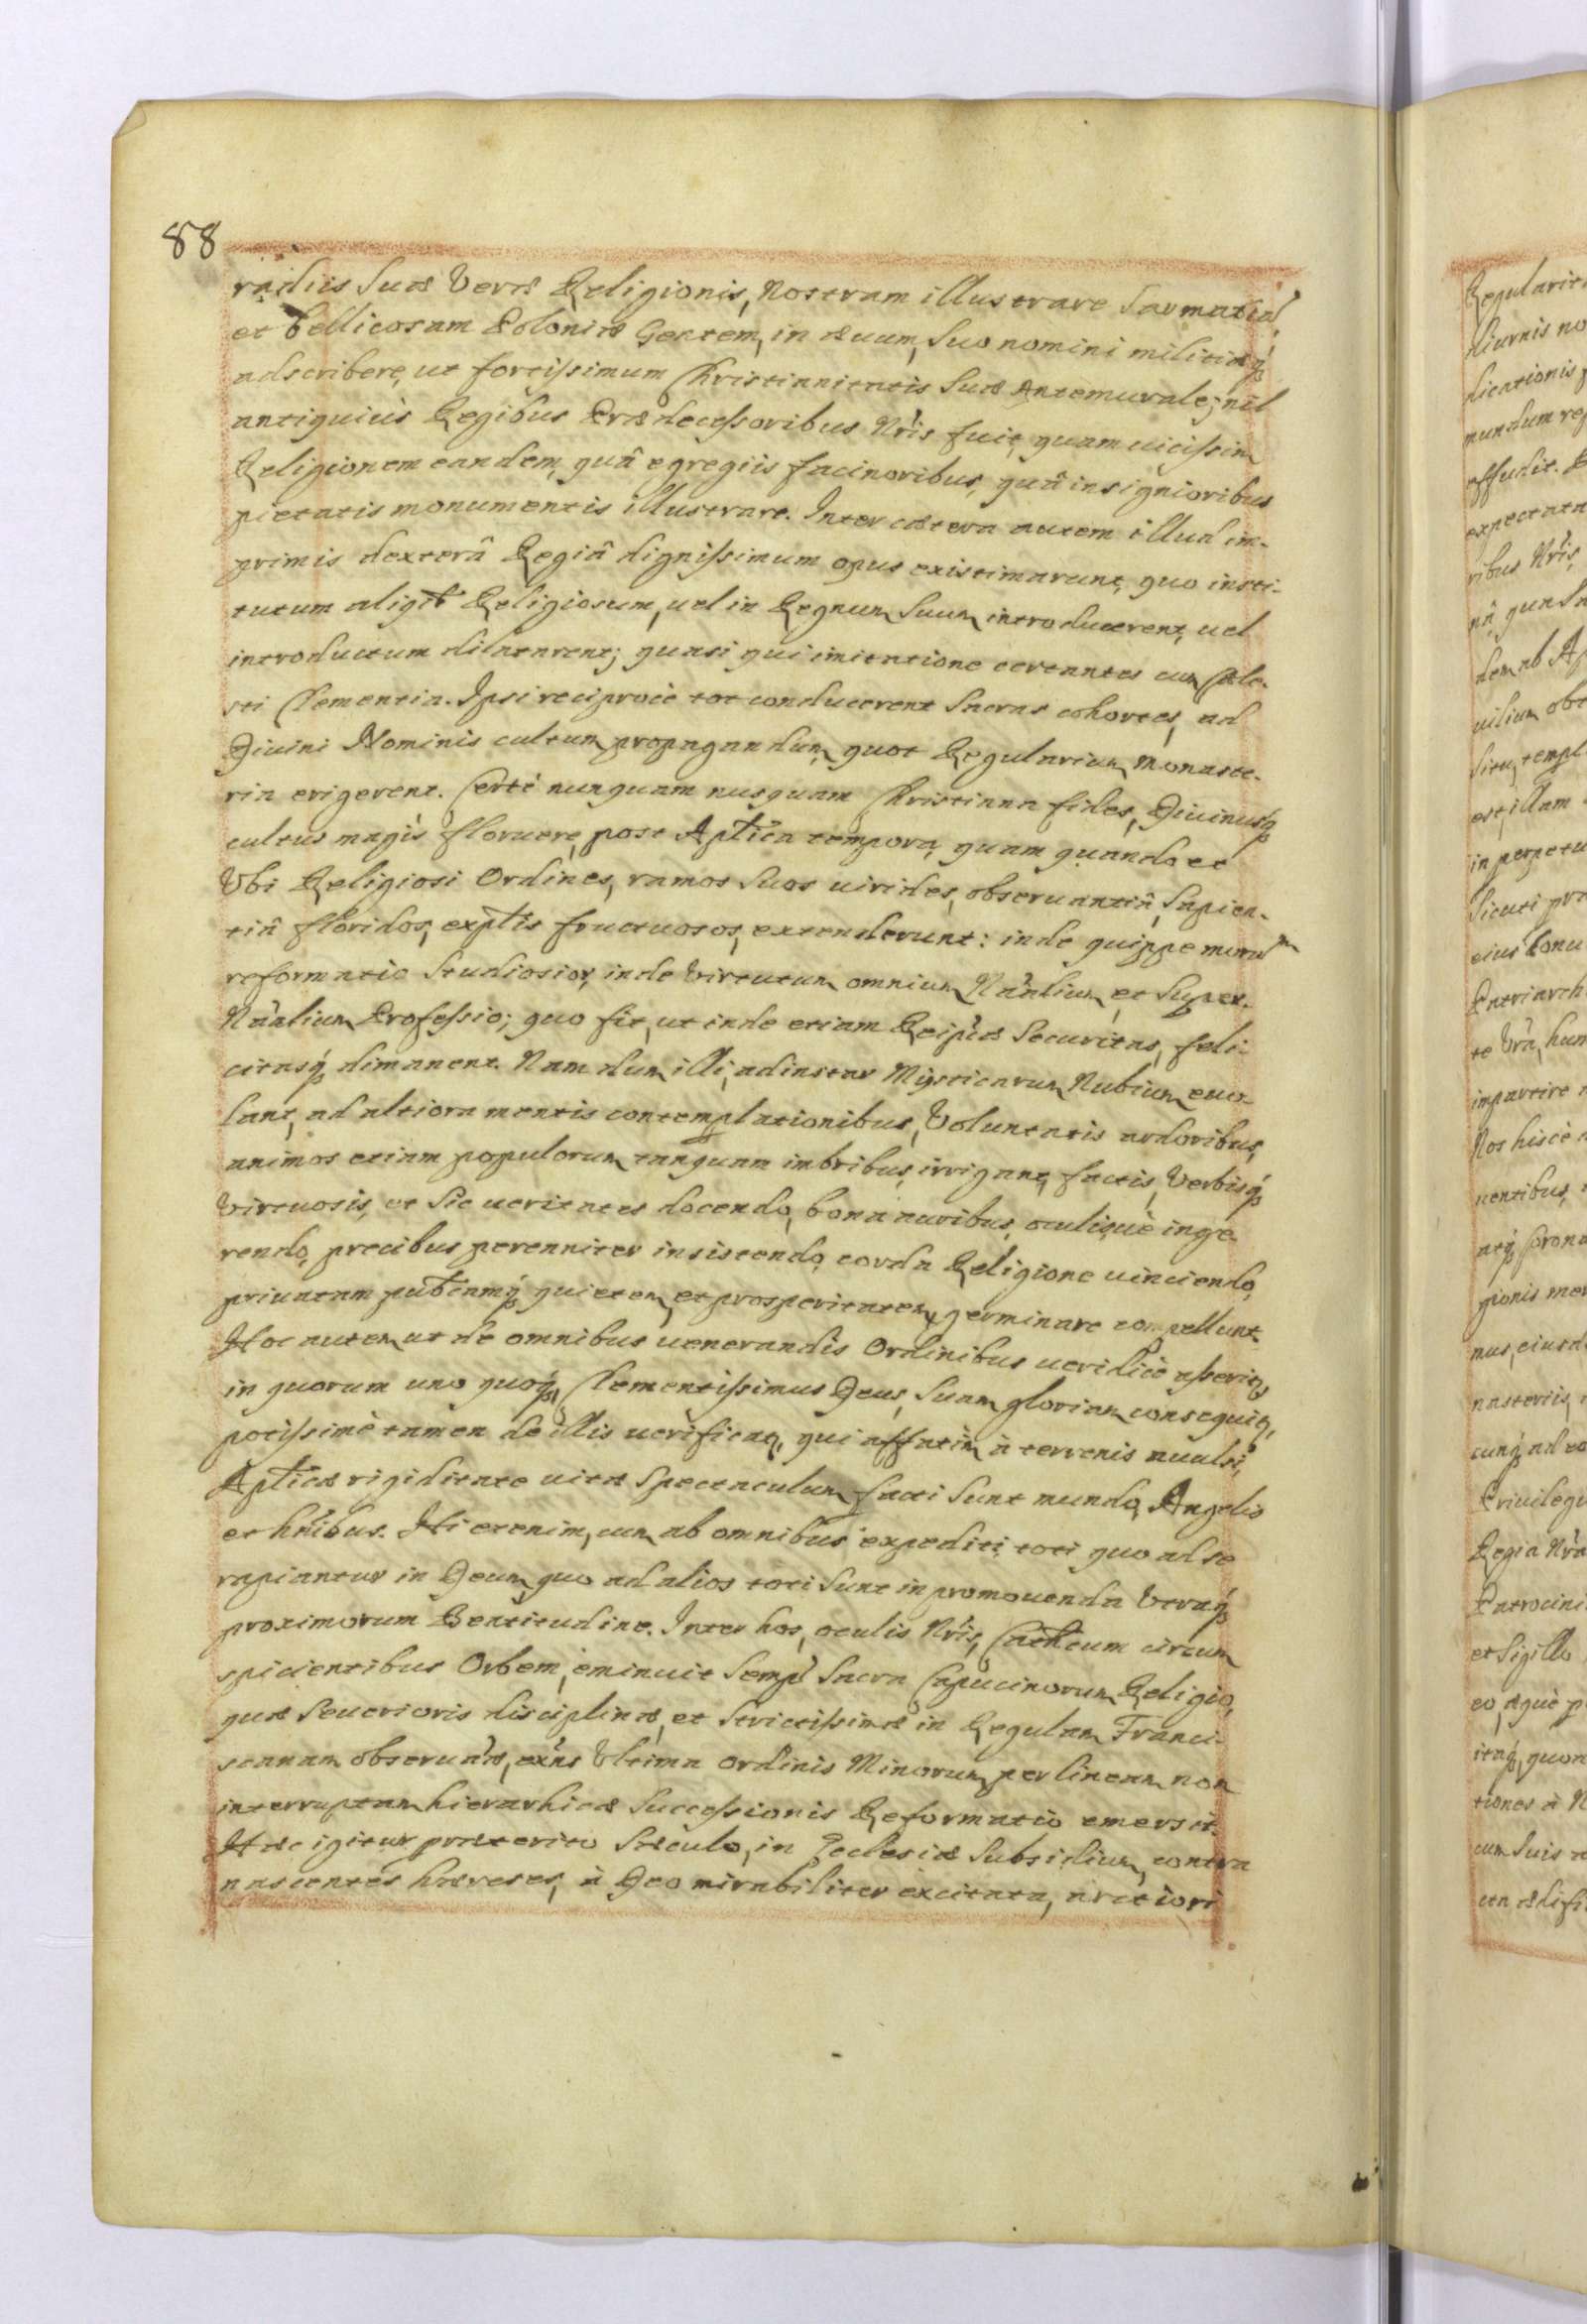 88
radiis suæ veræ Religionis, Nostram illustrare Sarmatiã,
et bellicosam Poloniæ Gentem, in æuum, suo nomini militiæq́
adscribere, ut fortissimum Christianitatis suæ Antemurale; nil
antiquiùs Regibus Prædecessoribus Nr̃is fuit, quam vicissim
Religionem eandem, quâ egregiis facinoribus, quâ insignioribus
pietatis monumentis illustrare. Inter cætera autem illud im-
primis dexterâ Regiâ dignissimum opus existimarunt, quo insti-
tutum aliq̃d Religiosum, uel in Regnum Suum introducerent, uel
introductum dilatarent; quasi qui imitatione certantes cum Cæle-
sti Clementia. Ipsi reciprocè tot conducerent Sacras cohortes, ad
Diuini Nominis cultum propagandum, quot Regularium Monaste-
ria erigerent. Certè nunquam nusquam Christiana fides, Diuinusq́
cultus magis floruere, post Ap̃lica tempora, quam quando et
Vbi Religiosi Ordines, ramos suos uirides, obseruantiâ, Sapien-
tiâ floridos, exp̃lis fructuosos, extenderunt: inde quippe morũ
reformatio Studiosior, inde Virtutum omnium Nãalium, et Super-
Nãalium Professio; quo fit, ut inde etiam Reip̃cæ Securitas, feli-
citasq́ dimanent. Nam dum illi, ad instar Mysticarum Nubium, euo-
lant, ad altiora mentis contemplationibus, Voluntatis ardoribus,
animos etiam populorum, tanquam imbribus, irrigant, factis, Verbisq́
virtuosis, et sic ueritates docendo, bona auribus, oculisquè inge-
rendo, precibus perenniter insistendo, corda Religione uinciendo,
priuatam publicamq́ quietem, et prosperitatem, germinare compellunt.
Hoc autem ut de omnibus uenerandis Ordinibus ueridicè asseritr,
in quorum uno quoq́, Clementissimus Deus, Suam gloriam consequitr,
potissimè tamen de illis uerificatr, qui affatìm à terrenis auulsi,
Ap̃licæ rigiditate uitæ spectaculum facti sunt mundo, Angelis
et hõibus. Hi etenim, cum ab omnibus expediti, toti quo ad se
rapiantur in Deum, quo ad alios toti sunt in promouenda Vtraq́
proximorum Beatitudine. Inter hos, oculis Nr̃is, Catholicum circum
spicientibus Orbem, eminuit Semp̃ Sacra Capucinorum Religio,
quæ Seuerioris disciplinæ, et strictissimæ in Regulam Franci-
scanam obserũæ, exñs Vltima Ordinis Minorum, per lineam non
interruptam hierarhicæ Successionis Reformatio emersit.
Hæc igitur præterito Sæculo, in Ecclesiæ Subsidium, contra
nascentes hæreses, à Deo mirabiliter excitata, arctiori